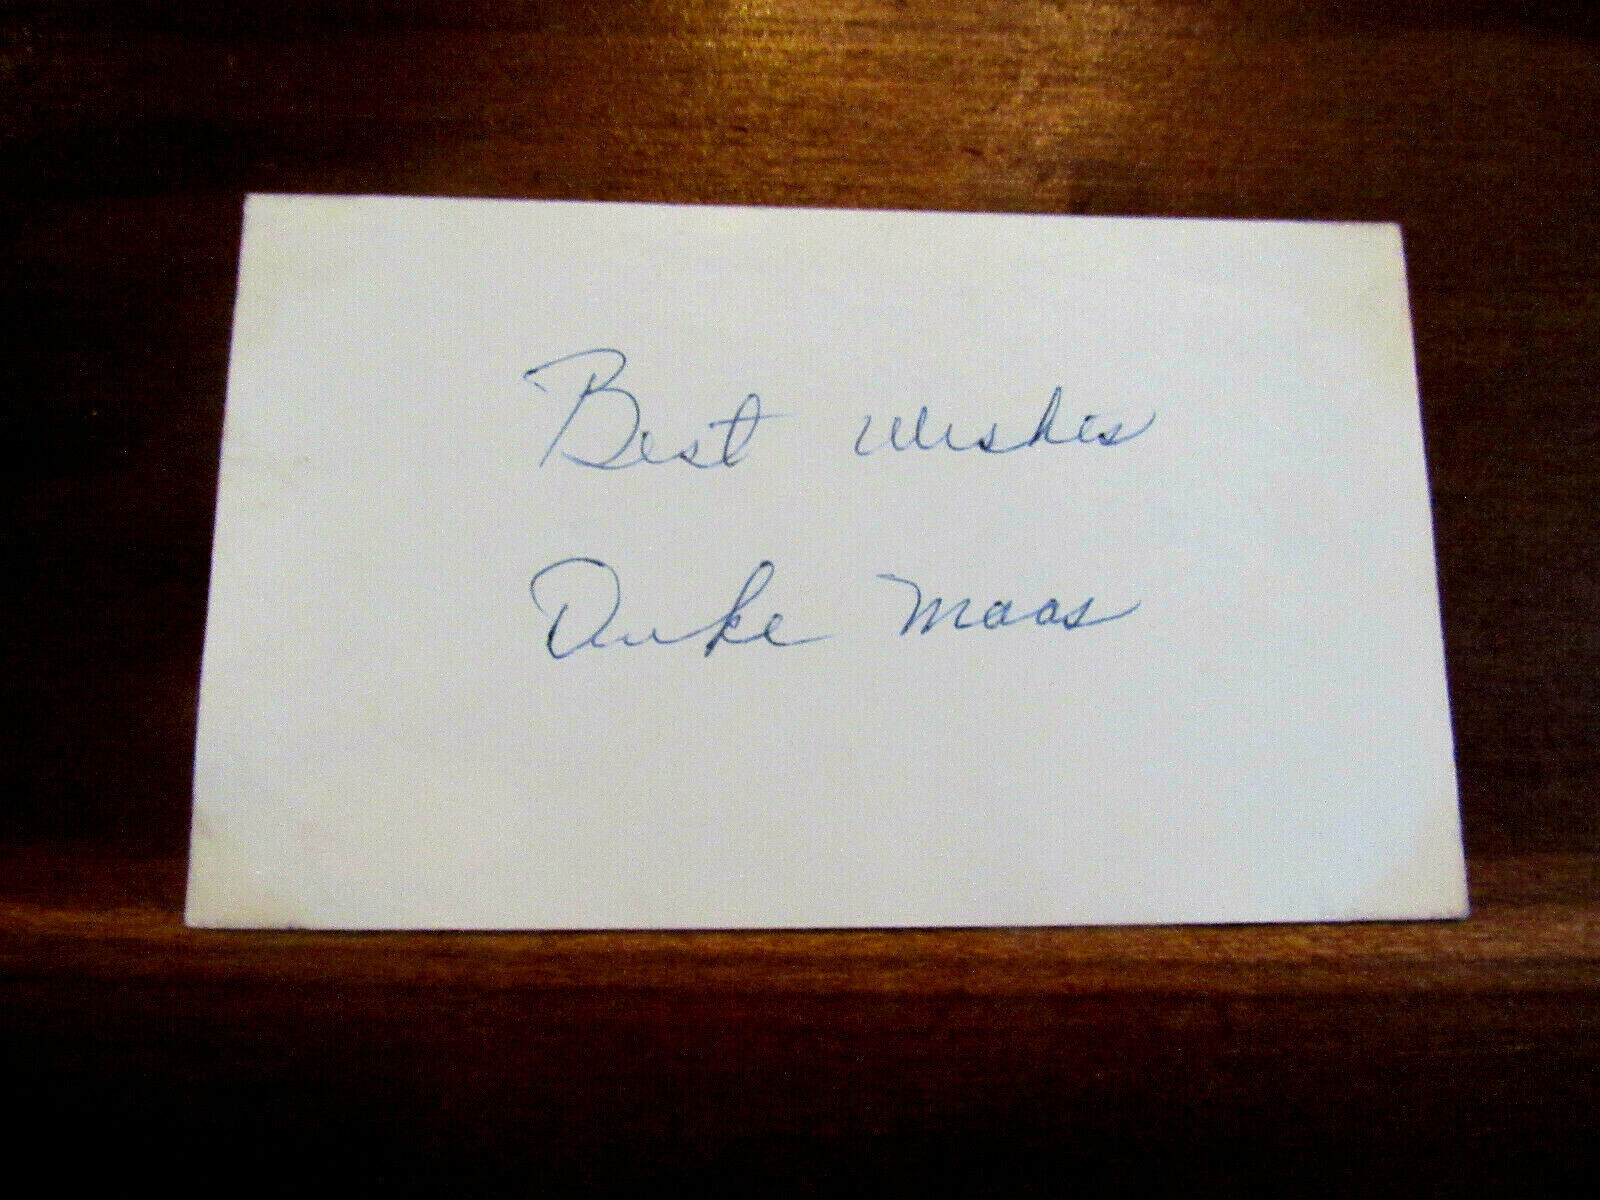 Best Wishes
Duke Maas